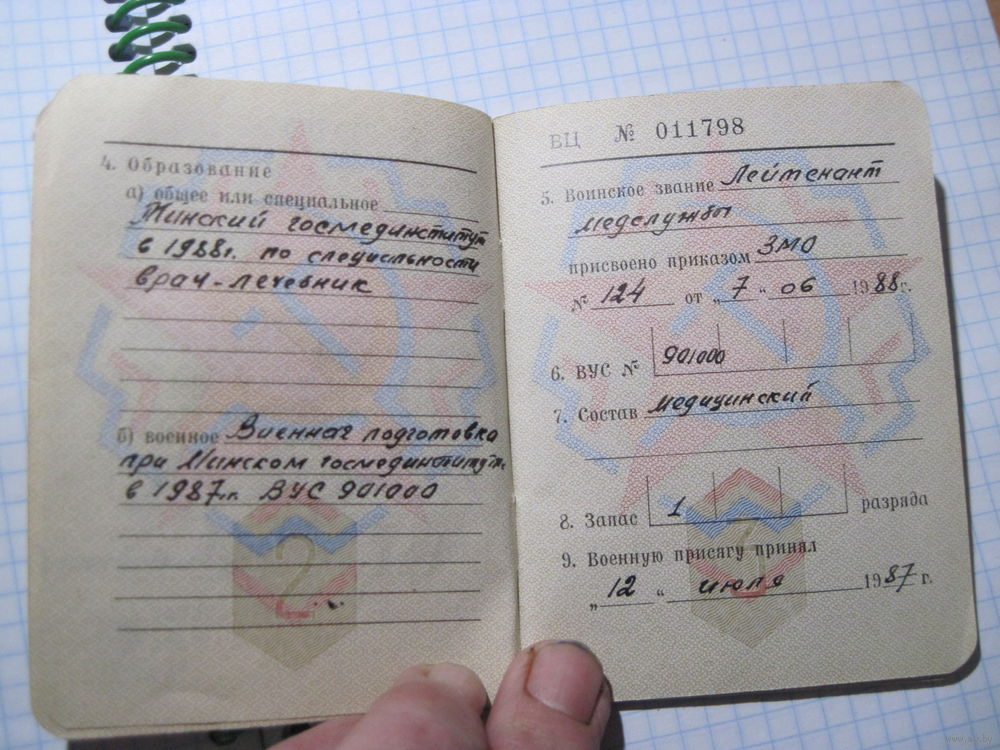 4. Образование
а) общее или специальное
Минский госмединститут
в 1988г. по специальности
врач-лечебник
б) военное Военная подготовка
при Минском госмединституте
в 1987г. ВУС 901000
2
ВЦ № 011798
5. Воинское звание Лейтенант
медслужбы
присвоено приказом ЗМО
№ 124 от „7“ 06 1988г.
6. ВУС № 901000
7. Состав медицинский
8. Запас 1 разряда
9. Военную присягу принял
„12“ июля 1987 г.
3